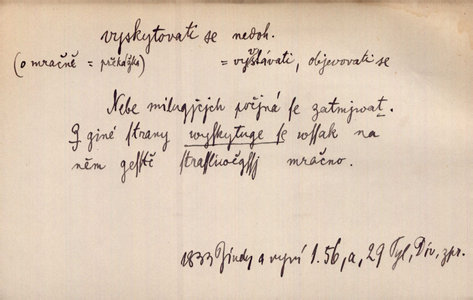 vyskytovati se nedok.
(o mračně = překážka) = vyvstávati, objevovati se
Nebe milugjcých počjná se zatmjwat.
Z giné strany wyskytuge se wssak na
něm gesstě strassliwěgssj mračno.
1833 Jindy a nyní 1. 56, a, 29 Tyl, Div. zpr.